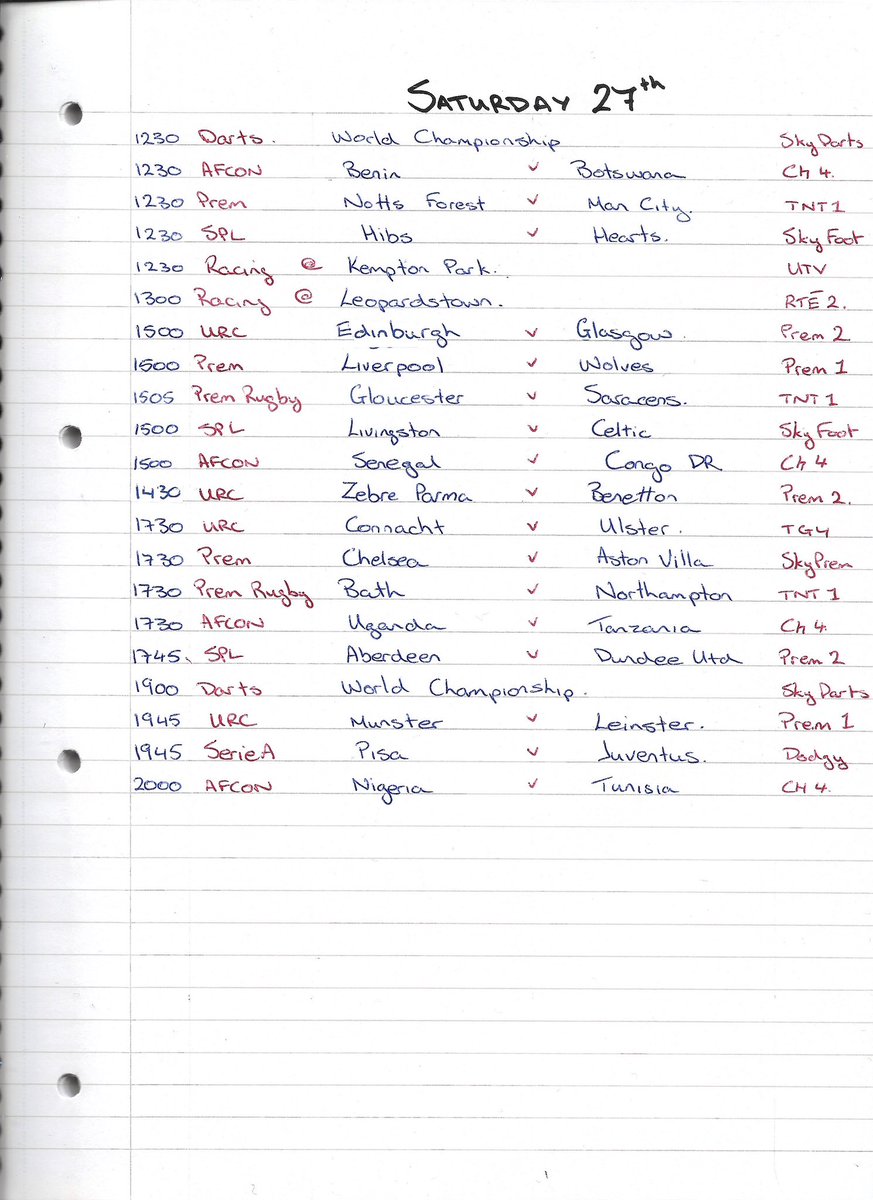 SATURDAY 27th
1230 Darts. World Championship Sky Darts
1230 AFCON Benin v Botswana Ch 4.
1230 Prem Notts Forest v Man City. TNT 1
1230 SPL Hibs v Hearts. Sky Foot
1230 Racing @ Kempton Park. UTV
1300 Racing @ Leopardstown. RTÉ 2.
1500 URC Edinburgh v Glasgow. Prem 2
1500 Prem Liverpool v Wolves Prem 1
1505 Prem Rugby Gloucester v Saracens. TNT 1
1500 SPL Livingston v Celtic Sky Foot
1500 AFCON Senegal v Congo DR Ch 4
1430 URC Zebre Parma v Benetton Prem 2.
1730 URC Connacht v Ulster. TG4
1730 Prem Chelsea v Aston Villa Sky Prem
1730 Prem Rugby Bath v Northampton TNT 1
1730 AFCON Uganda v Tanzania Ch 4.
1745. SPL Aberdeen v Dundee Utd Prem 2
1900 Darts World Championship. Sky Darts
1945 URC Munster v Leinster. Prem 1
1945 Serie A Pisa v Juventus. Dodgy
2000 AFCON Nigeria v Tunisia CH 4.